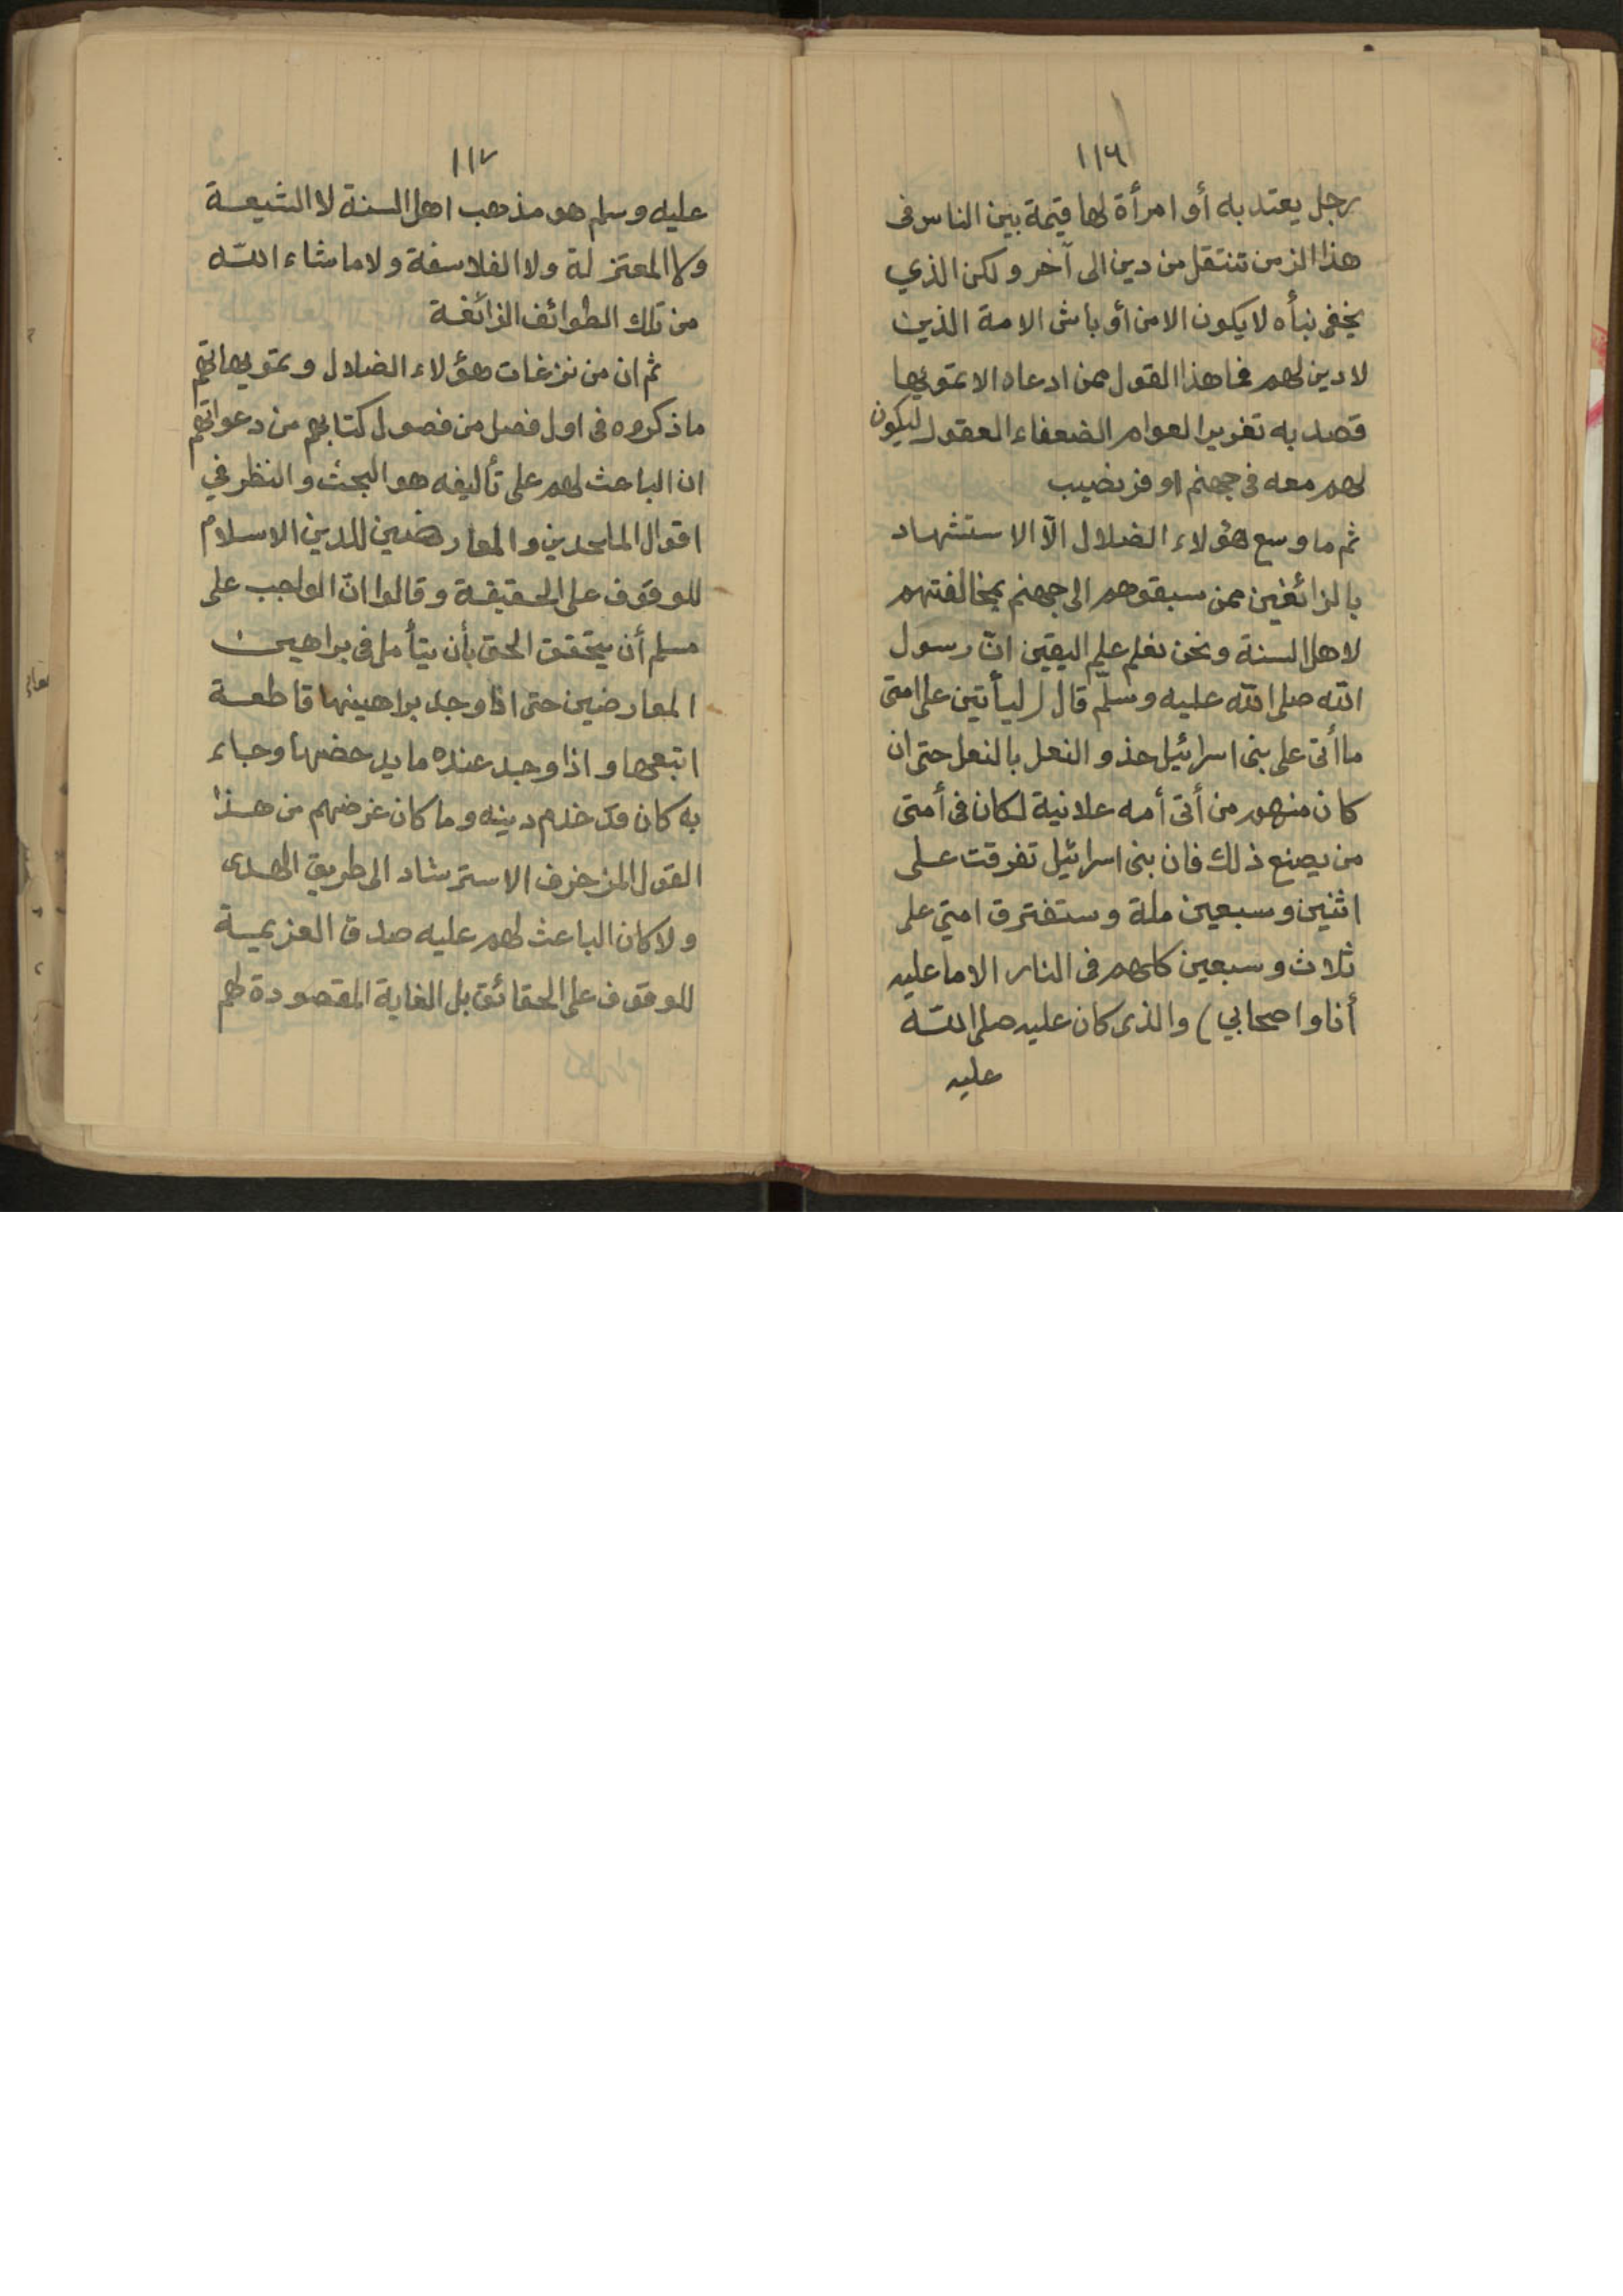 ١١٦
رجل يعتد به أو امرأة لها قيمة بين الناس فى
هذا الزمن تنتقل من دين الى آخر ولكن الذي
يخفى نبأه لا يكون الا من أو باش الامة الذين
لا دين لهم فما هذا القول ممن ادعاه الا تمويها
قصد به تغرير العوام الضعفاء العقول ليكون
لهم معه فى جهنم اوفر نصيب
ثم ما وسع هؤلاء الضلال الّا الاستشهاد
بالزائغين ممن سبقوهم الى جهنم بمخالفتهم
لاهل السنة ونحن نعلم علم اليقين انّ رسول
الله صلى الله عليه وسلّم قال (ليأتين على امتى
ما أتى على بنى اسرائيل حذو النعل بالنعل حتى ان
كان منهم من أتى أمه علانية لكان فى أمتى
من يصنع ذلك فان بنى اسرائيل تفرقت على
اثنين وسبعين ملة وستفترق امتي على
ثلاث وسبعين كلهم فى النار الا ما عليه
أنا واصحابي) والذى كان عليه صلى الله
عليه
١١٧
عليه وسلم هو مذهب اهل السنة لا الشيعة
ولا المعتزلة ولا الفلاسفة ولا ما شاء الله
من تلك الطوائف الزائغة
ثم ان من نزغات هؤلاء الضلال وتمويهاتهم
ما ذكروه فى اول فصل من فصول كتابهم من دعواتهم
ان الباعث لهم على تأليفه هو البحث والنظر في
اقوال الملحدين والمعارضين للدين الاسلام
للوقوف على الحقيقة وقالوا انّ الواجب على
مسلم أن يتحقق الحق بأن يتأمل فى براهين
المعارضين حتى اذا وجد براهينها قاطعة
اتبعها واذا وجد عنده ما يدحضها وجاء
به كان قد خدم دينه وما كان غرضهم من هذا
القول المزخرف الاسترشاد الى طريق الهدى
ولا كان الباعث لهم عليه صدق العزيمية
للوقوف على الحقائق بل الغاية المقصودة لهم